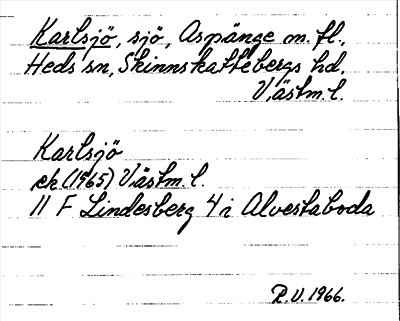 Karlsjö, sjö, Aspänge m. fl.,
Heds sn, Skinnskattebergs hd,
Västm. l.
Karlsjö
ek (1965) Västm. l.
11 F Lindesberg 4 i Alvestaboda
R.V. 1966.